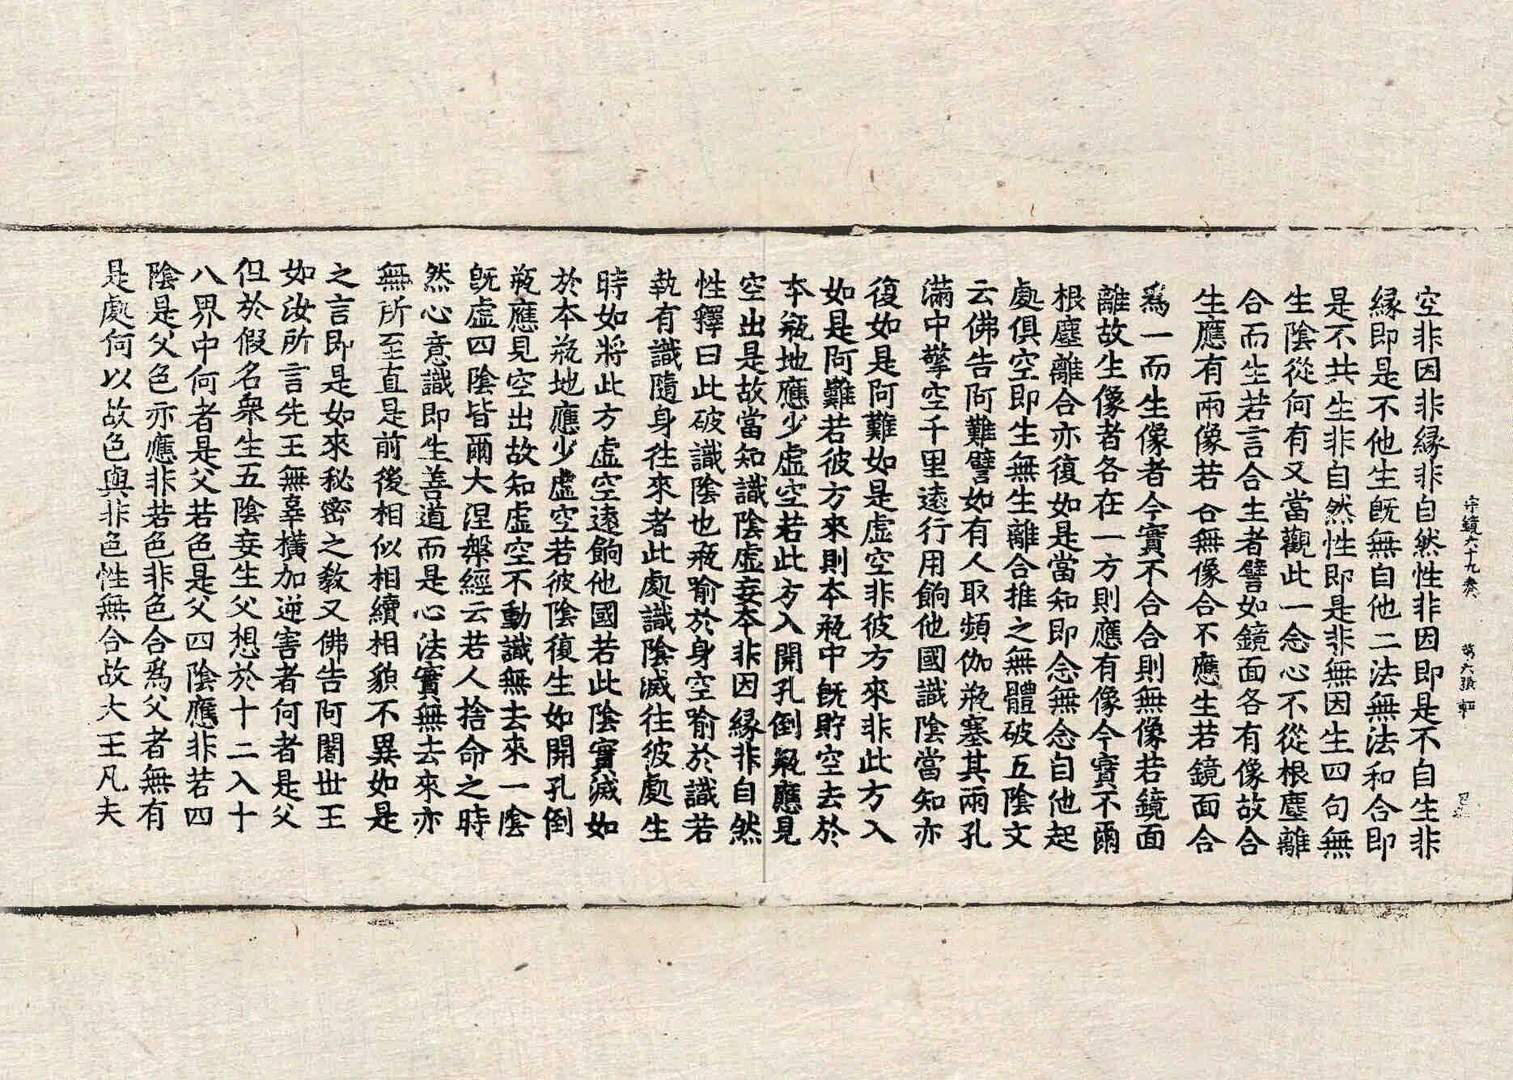 宗鏡六十九卷 第六張 軒
空非因非縁非自然性非因即是不自生非
縁即是不他生旣無自他二法無法和合即
是不共生非自然性即是非無因生四句無
生陰從何有又當觀此一念心不從根塵離
合而生若言合生者譬如鏡面各有像故合
生應有兩像若合無像合不應生若鏡面合
爲一而生像者今實不合合則無像若鏡面
離故生像者各在一方則應有像今實不爾
根塵離合亦復如是當知即念無念自他起
處俱空即生無生離合推之無體破五陰文
云佛告阿難譬如有人取頻伽瓶塞其兩孔
滿中擎空千里遠行用餉他國識陰當知亦
復如是阿難如是虚空非彼方來非此方入
如是阿難若彼方來則本瓶中旣貯空去於
本瓶地應少虚空若此方入開孔倒瓶應見
空出是故當知識陰虚妄本非因縁非自然
性釋曰此破識陰也瓶喻於身空喻於識若
執有識隨身往來者此處識陰滅往彼處生
時如將此方虚空遠餉他國若此陰實滅如
於本瓶地應少虚空若彼陰復生如開孔倒
瓶應見空出故知虚空不動識無去來一陰
旣虚四陰皆爾大涅槃經云若人捨命之時
然心意識即生善道而是心法實無去來亦
無所至直是前後相似相續相貌不異如是
之言即是如來秘密之教又佛告阿闍世王
如汝所言先王無辜橫加逆害者何者是父
但於假名衆生五陰妄生父想於十二入十
八界中何者是父若色是父四陰應非若四
陰是父色亦應非若色非色合爲父者無有
是處何以故色與非色性無合故大王凡夫